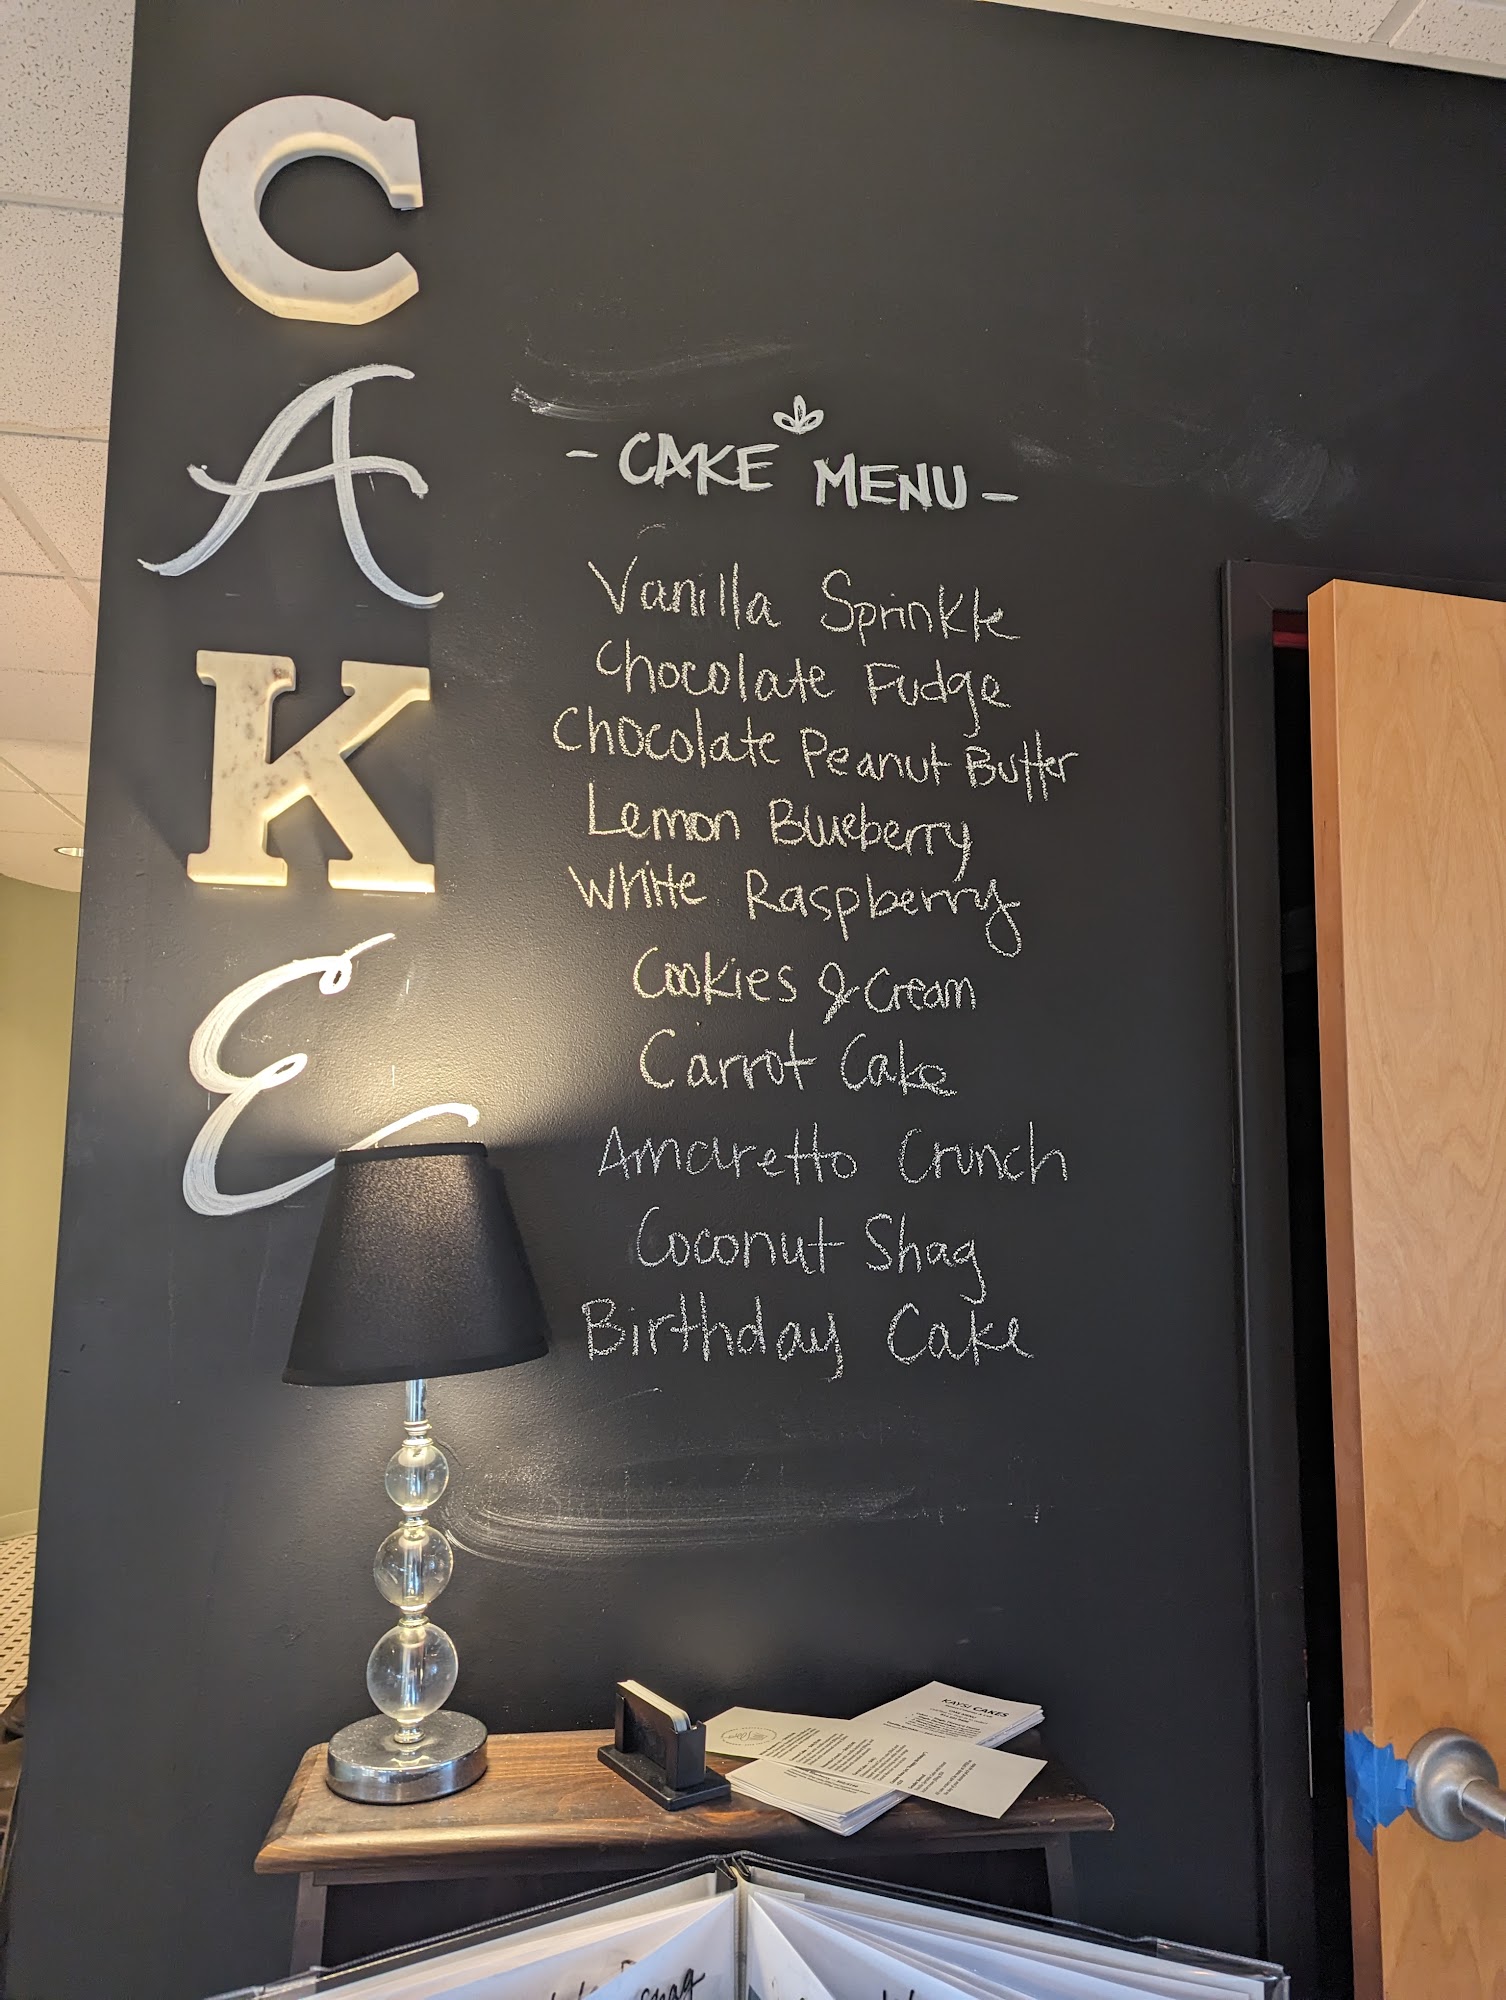 CAKE
- CAKE MENU -
Vanilla Sprinkle
Chocolate Fudge
Chocolate Peanut Butter
Lemon Blueberry
White Raspberry
Cookies & Cream
Carrot Cake
Amaretto Crunch
Coconut Shag
Birthday Cake
KAYSL CAKES